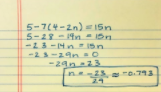 5-7(4-2n)=15n
5-28-14n=15n
-23-14n=15n
-23-29n=0
-29n=23
n=-23/29≈-0.793